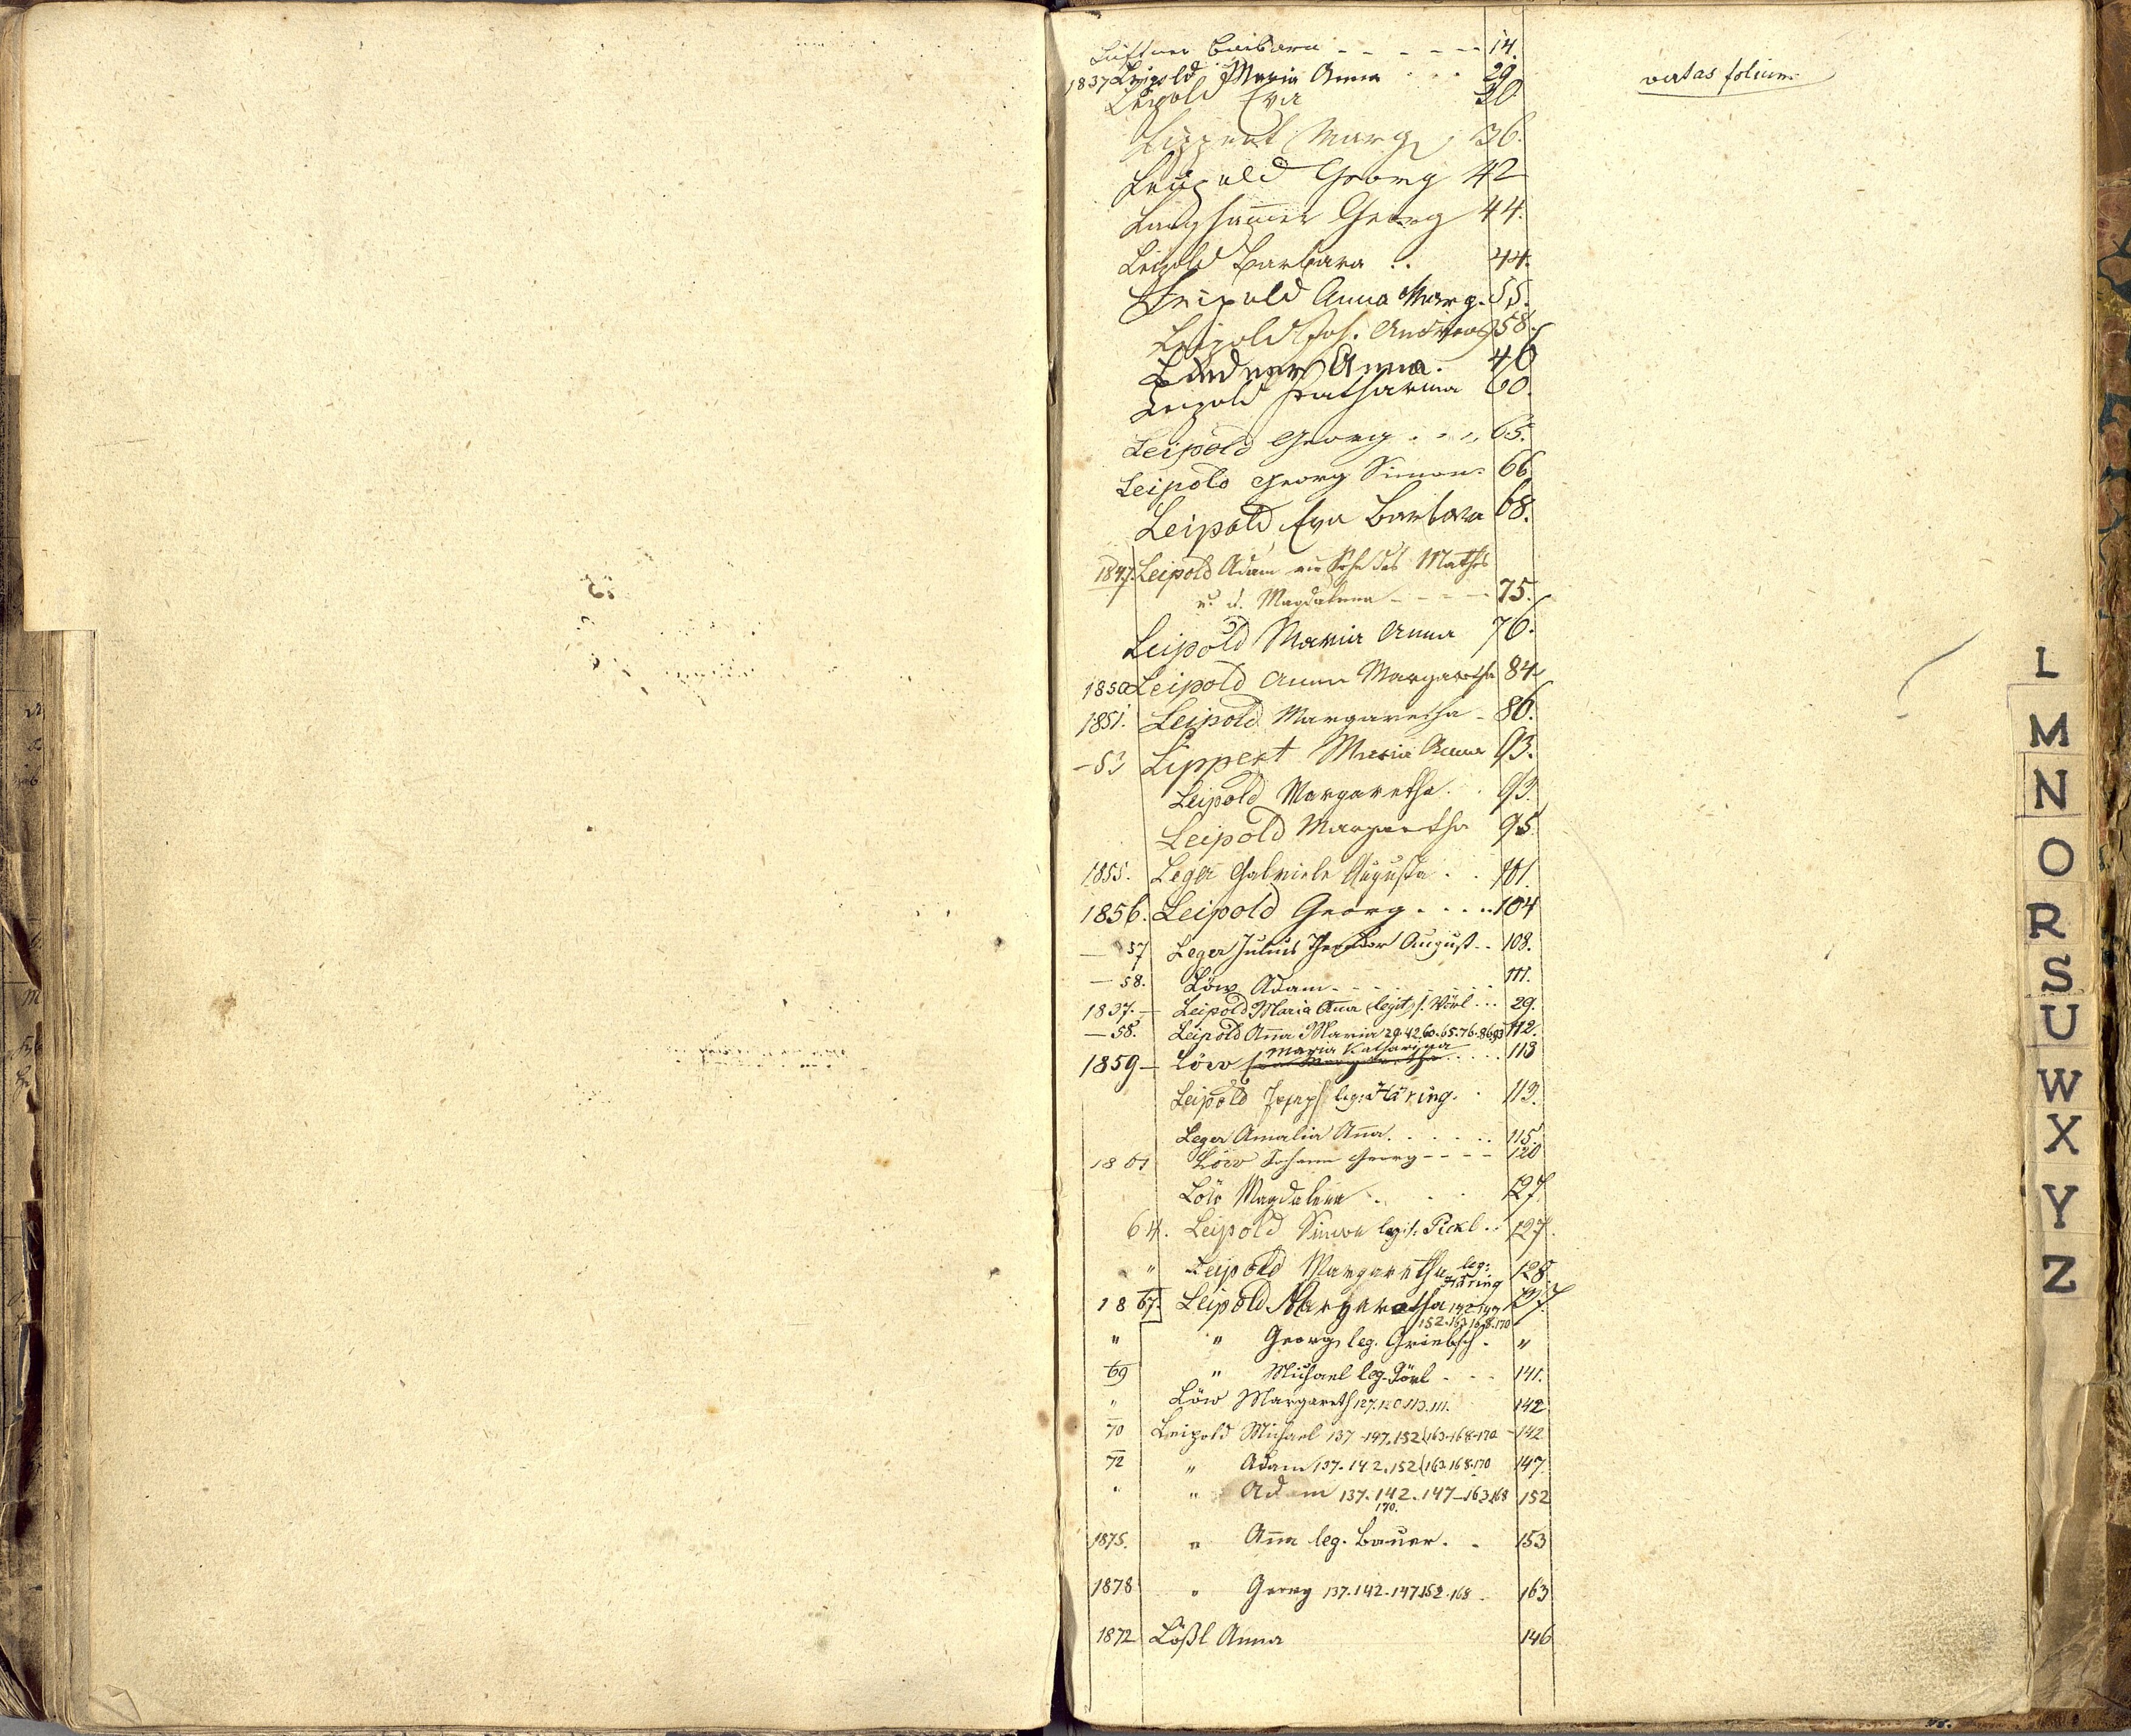 Barbara - - - - - - 14.
vertas folium
1837 Leipold Maria Anna . . . 29.
Leipold Eva 30
Lippert Marg. 36.
Leipold Georg 42
Langhammer Georg 44.
Leipold Barbara .. 44.
Leipold Anna Marg. 55.
Leipold Joh. Andreas 58.
Lindner Anna. 40
Leipold Katharina 60.
Leipold Georg . . . 65.
Leipold Georg Simon. 66
Leipold Eva Barbara 68.
1847. Leipold Adam des Mathes
u. d. Magdalena - - - - 75.
Leipold Maria Anna 76.
1850 Leipold Anna Margaretha 84.
1851. Leipold Margaretha - 86.
-53 Lippert Maria Anna 93.
Leipold Margaretha . . 93.
Leipold Margaretha 95.
1855. Leger Gabriele Augusta . . 101.
1856. Leipold Georg . . . . . 104
— 57 Leger Julius Theodor August . . 108.
— 58. Löw Adam - - - - - 111.
1837. — Leipold Maria Anna (legit.) f. Wörl . . . 29.
— 58. Leipold Anna Maria 29.42.60.65.76.86.93 112.
Maria Katharina
1859 — Löw . . . . . 113
Leipold Joseph leg: Häring . . 113.
Leger Amalia Anna. . . . . . . 115.
1861 Löw Johann Georg - - - - 120
Löw Magdalena . . . 127
64. Leipold Simon legit. Pickl . . 127.
" Leipold Margaretha leg: 128.
Häring
1867. Leipold Margaretha 142.147 137.
152.163.168.170
" " Georg leg. Griebsch . "
69 " Michael leg. - - - 141.
" Löw Margareth 127.120.113.111. 142
70 Leipold Michael 137-147.152.(163.168.170 - 142
72 " Adam 137.142.152.(163.168.170 147.
" " Adam 137.142.147-163.168 152
170.
1875. " Anna leg. Bauer . . 153
1878 " Georg 137.142.147.152.168 . 163
1872 Lößl Anna 146
L
M
N
O
R
S
U
W
X
Y
Z